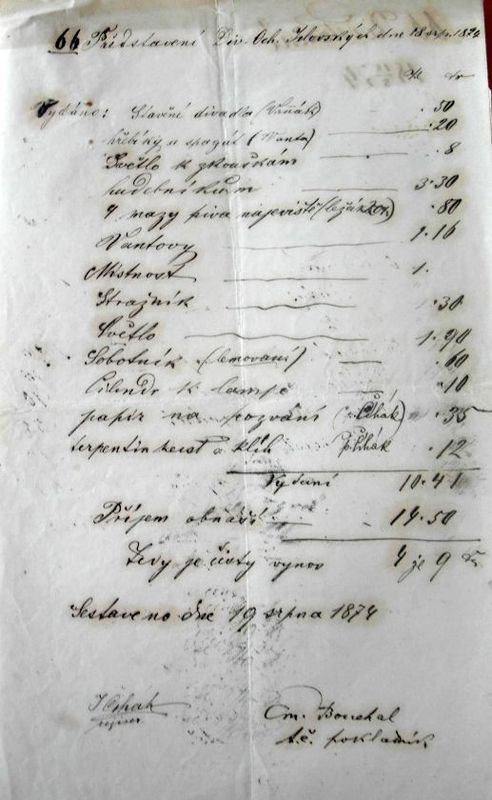 66 Představení Div. Och. Jilovských dne 18 srp. 1874
zl kr
Vydáno: Stavění divadla (Vršák) .50
hřebíky a špagát (Vanta) .20
Světlo k zkouškám .8
hudebníkům 3.30
4 mazy piva na jeviště (ležák .80
Vantovy 1.16
Místnost 1.
Strážník .30
Světlo 1.90
Sobotník (lemování) .60
Cilindr k lampě .10
papír na pozvání (p. Čihák) .35
terpentin a klih p. Čihák .12
Vydání 10.41
Příjem obnáší 14.50
Tedy je čistý vynos 4 je 9 kr
Sestaveno dne 19 srpna 1874
J Čihák
režiser
Em. Bouchal
t.č. pokladník